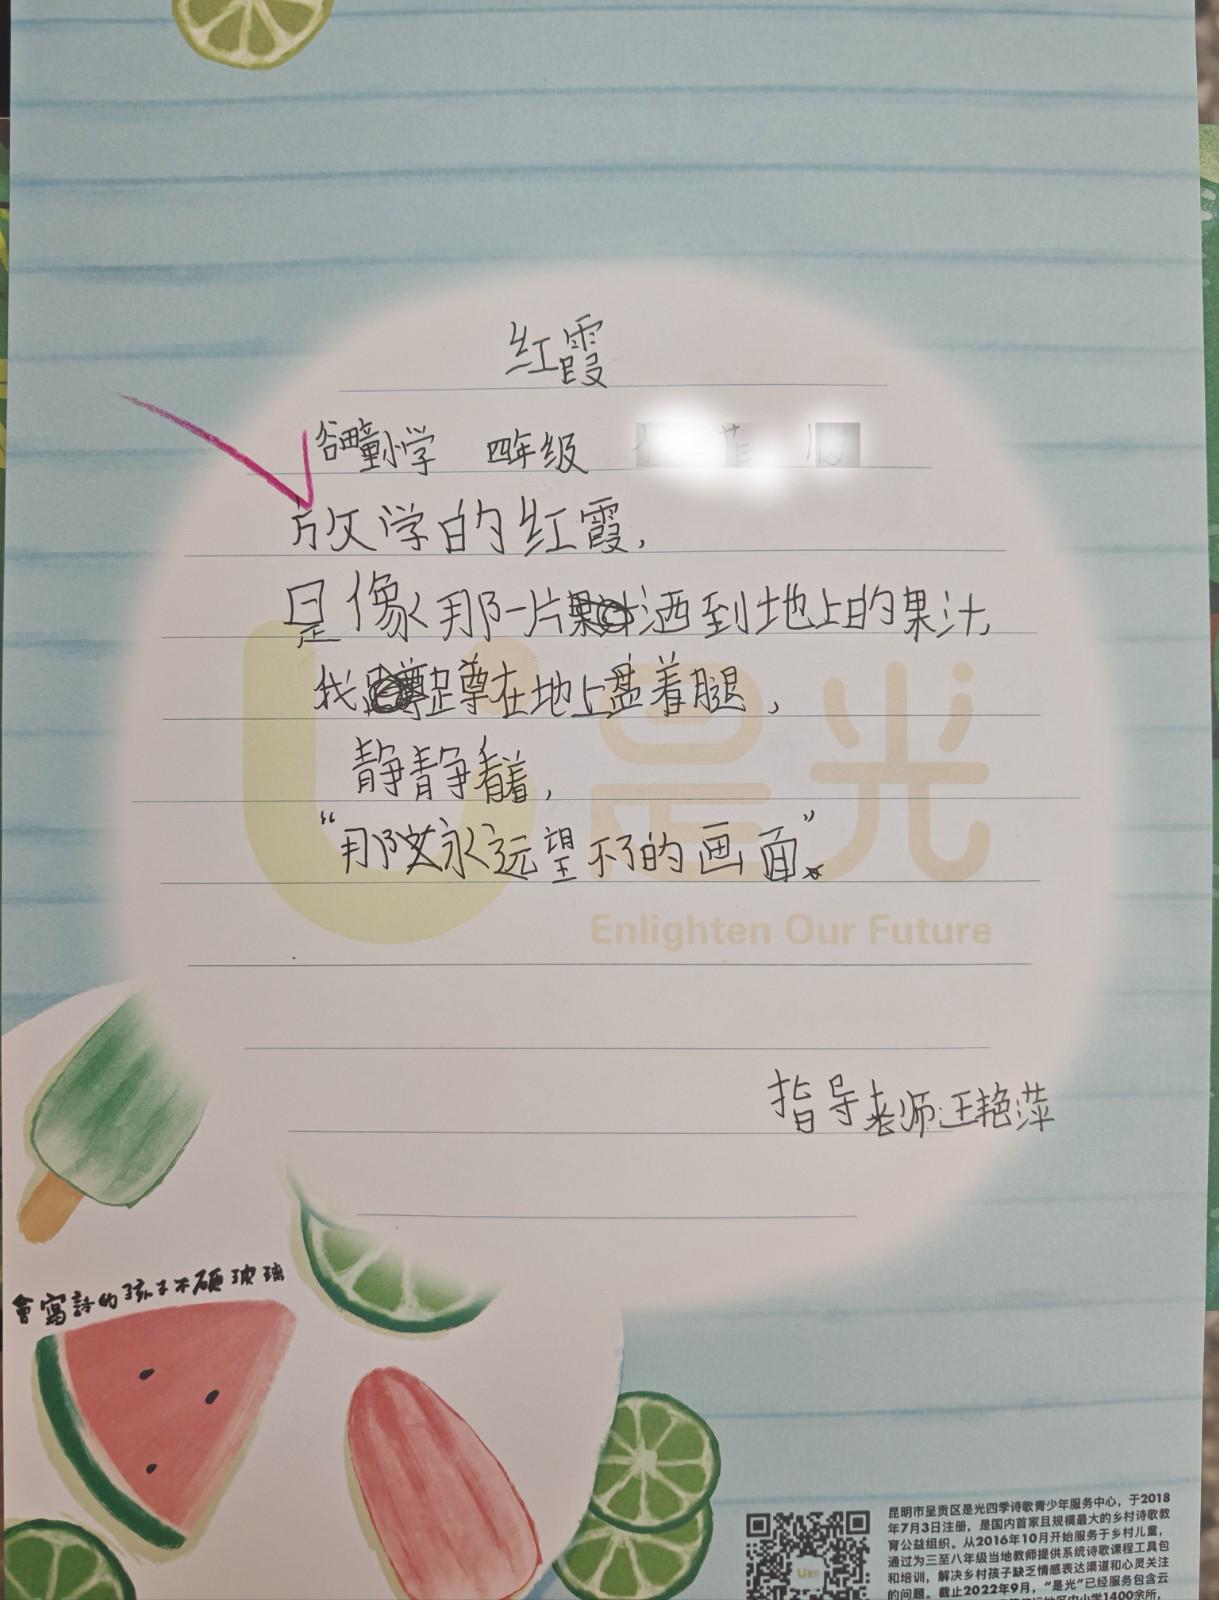 红霞
谷疃小学 四年级
放学的红霞,
是像那一片洒到地上的果汁,
我蹲在地上盘着腿,
静静看着,
“那永远望不了的画面”。
U是光
Enlighten Our Future
指导老师:王艳萍
會寫詩的孩子不砸玻璃
昆明市呈贡区是光四季诗歌青少年服务中心，于2018
年7月3日注册，是国内首家且规模最大的乡村诗歌教
育公益组织。从2016年10月开始服务于乡村儿童，
通过为三至八年级当地教师提供系统诗歌课程工具包
和培训，解决乡村孩子缺乏情感表达渠道和心灵关注
的问题。截止2022年9月，“是光”已经服务包含云
中小学1400余所，